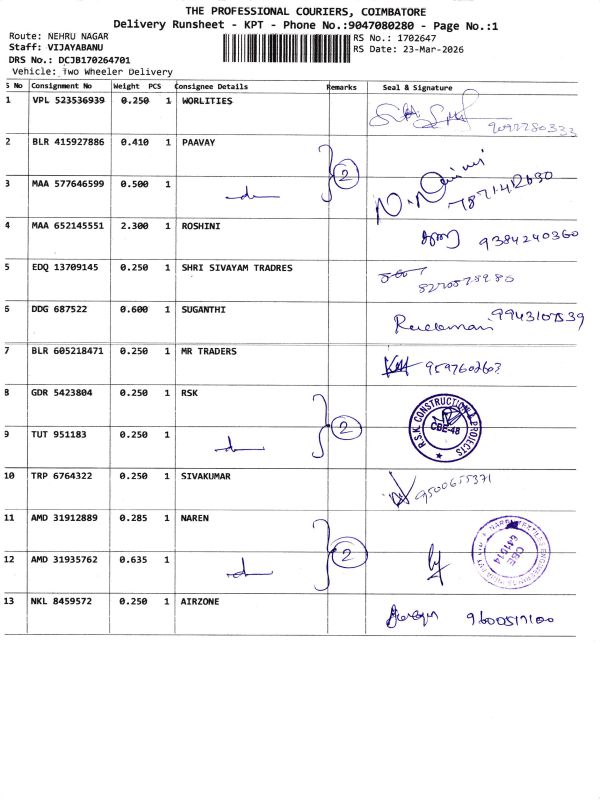 THE PROFESSIONAL COURIERS, COIMBATORE
Delivery Runsheet - KPT - Phone No.:9047080280 - Page No.:1
Route: NEHRU NAGAR
RS No.: 1702647
Staff: VIJAYABANU
RS Date: 23-Mar-2026
DRS No.: DCJB170264701
Vehicle: Two Wheeler Delivery
S No Consignment No Weight PCS Consignee Details Remarks Seal & Signature
1 VPL 523536939 0.250 1 WORLITIES
2 BLR 415927886 0.410 1 PAAVAY
2
3 MAA 577646599 0.500 1
4 MAA 652145551 2.300 1 ROSHINI
9384240360
5 EDQ 13709145 0.250 1 SHRI SIVAYAM TRADRES
6 DDG 687522 0.600 1 SUGANTHI
7 BLR 605218471 0.250 1 MR TRADERS
9597602603
8 GDR 5423804 0.250 1 RSK
2
R.S.K. CONSTRUCTION & PROJECTS
CBE-48
9 TUT 951183 0.250 1
10 TRP 6764322 0.250 1 SIVAKUMAR
9500655371
11 AMD 31912889 0.285 1 NAREN
2
CBE
641014
12 AMD 31935762 0.635 1
13 NKL 8459572 0.250 1 AIRZONE
9600517100